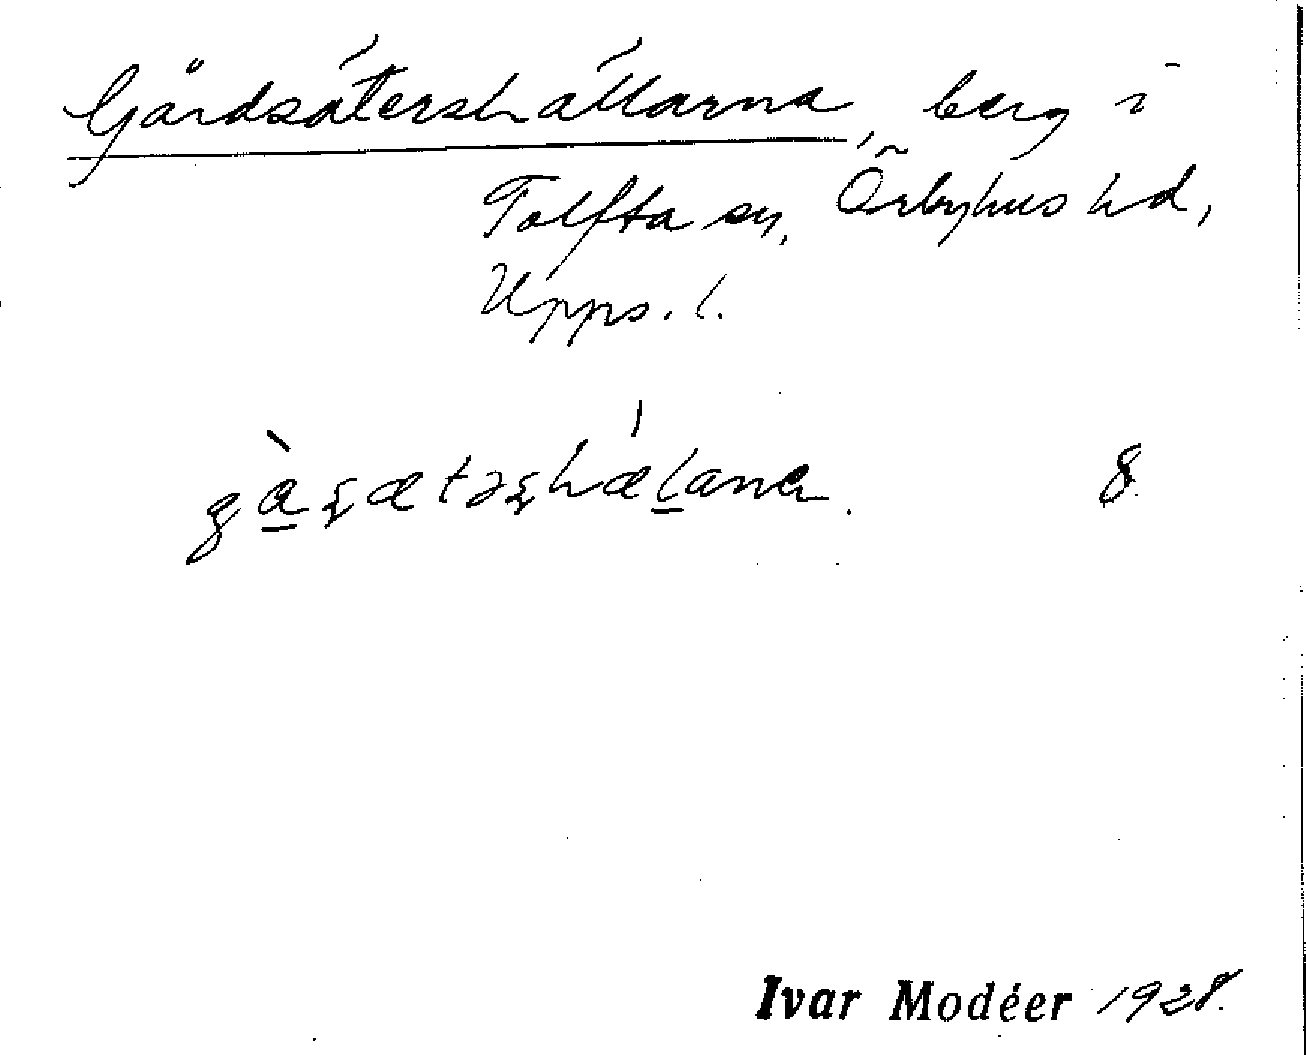 Gårdsätershällarna, berg i
Tolfta sn, Örbyhus hd,
Upps. l.
8.
Ivar Modéer 1928.